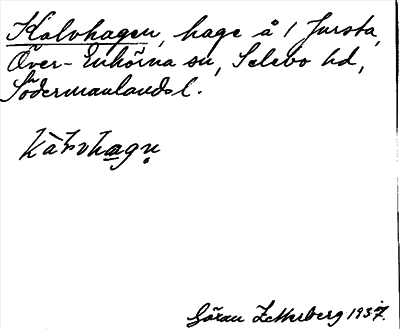 Kalvhagen, hage å 1 Jursta,
Över-Enhörna sn, Selebo hd,
Södermanlands l.
Göran Zetterberg 1937.